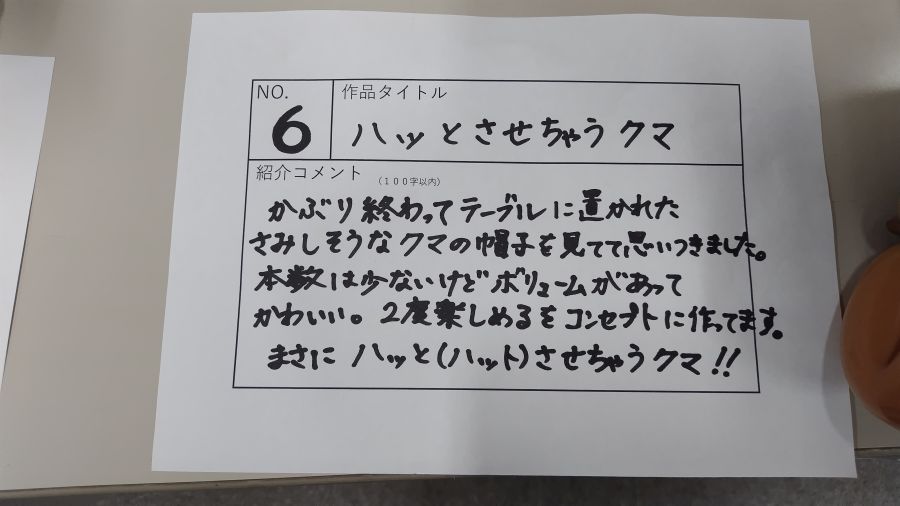 NO.
6
作品タイトル
ハッとさせちゃうクマ
紹介コメント
（１００字以内）
かぶり終わってテーブルに置かれた
さみしそうなクマの帽子を見てて思いつきました。
本数は少ないけどボリュームがあって
かわいい。2度楽しめるをコンセプトに作ってます。
まさに ハッと(ハット)させちゃうクマ!!